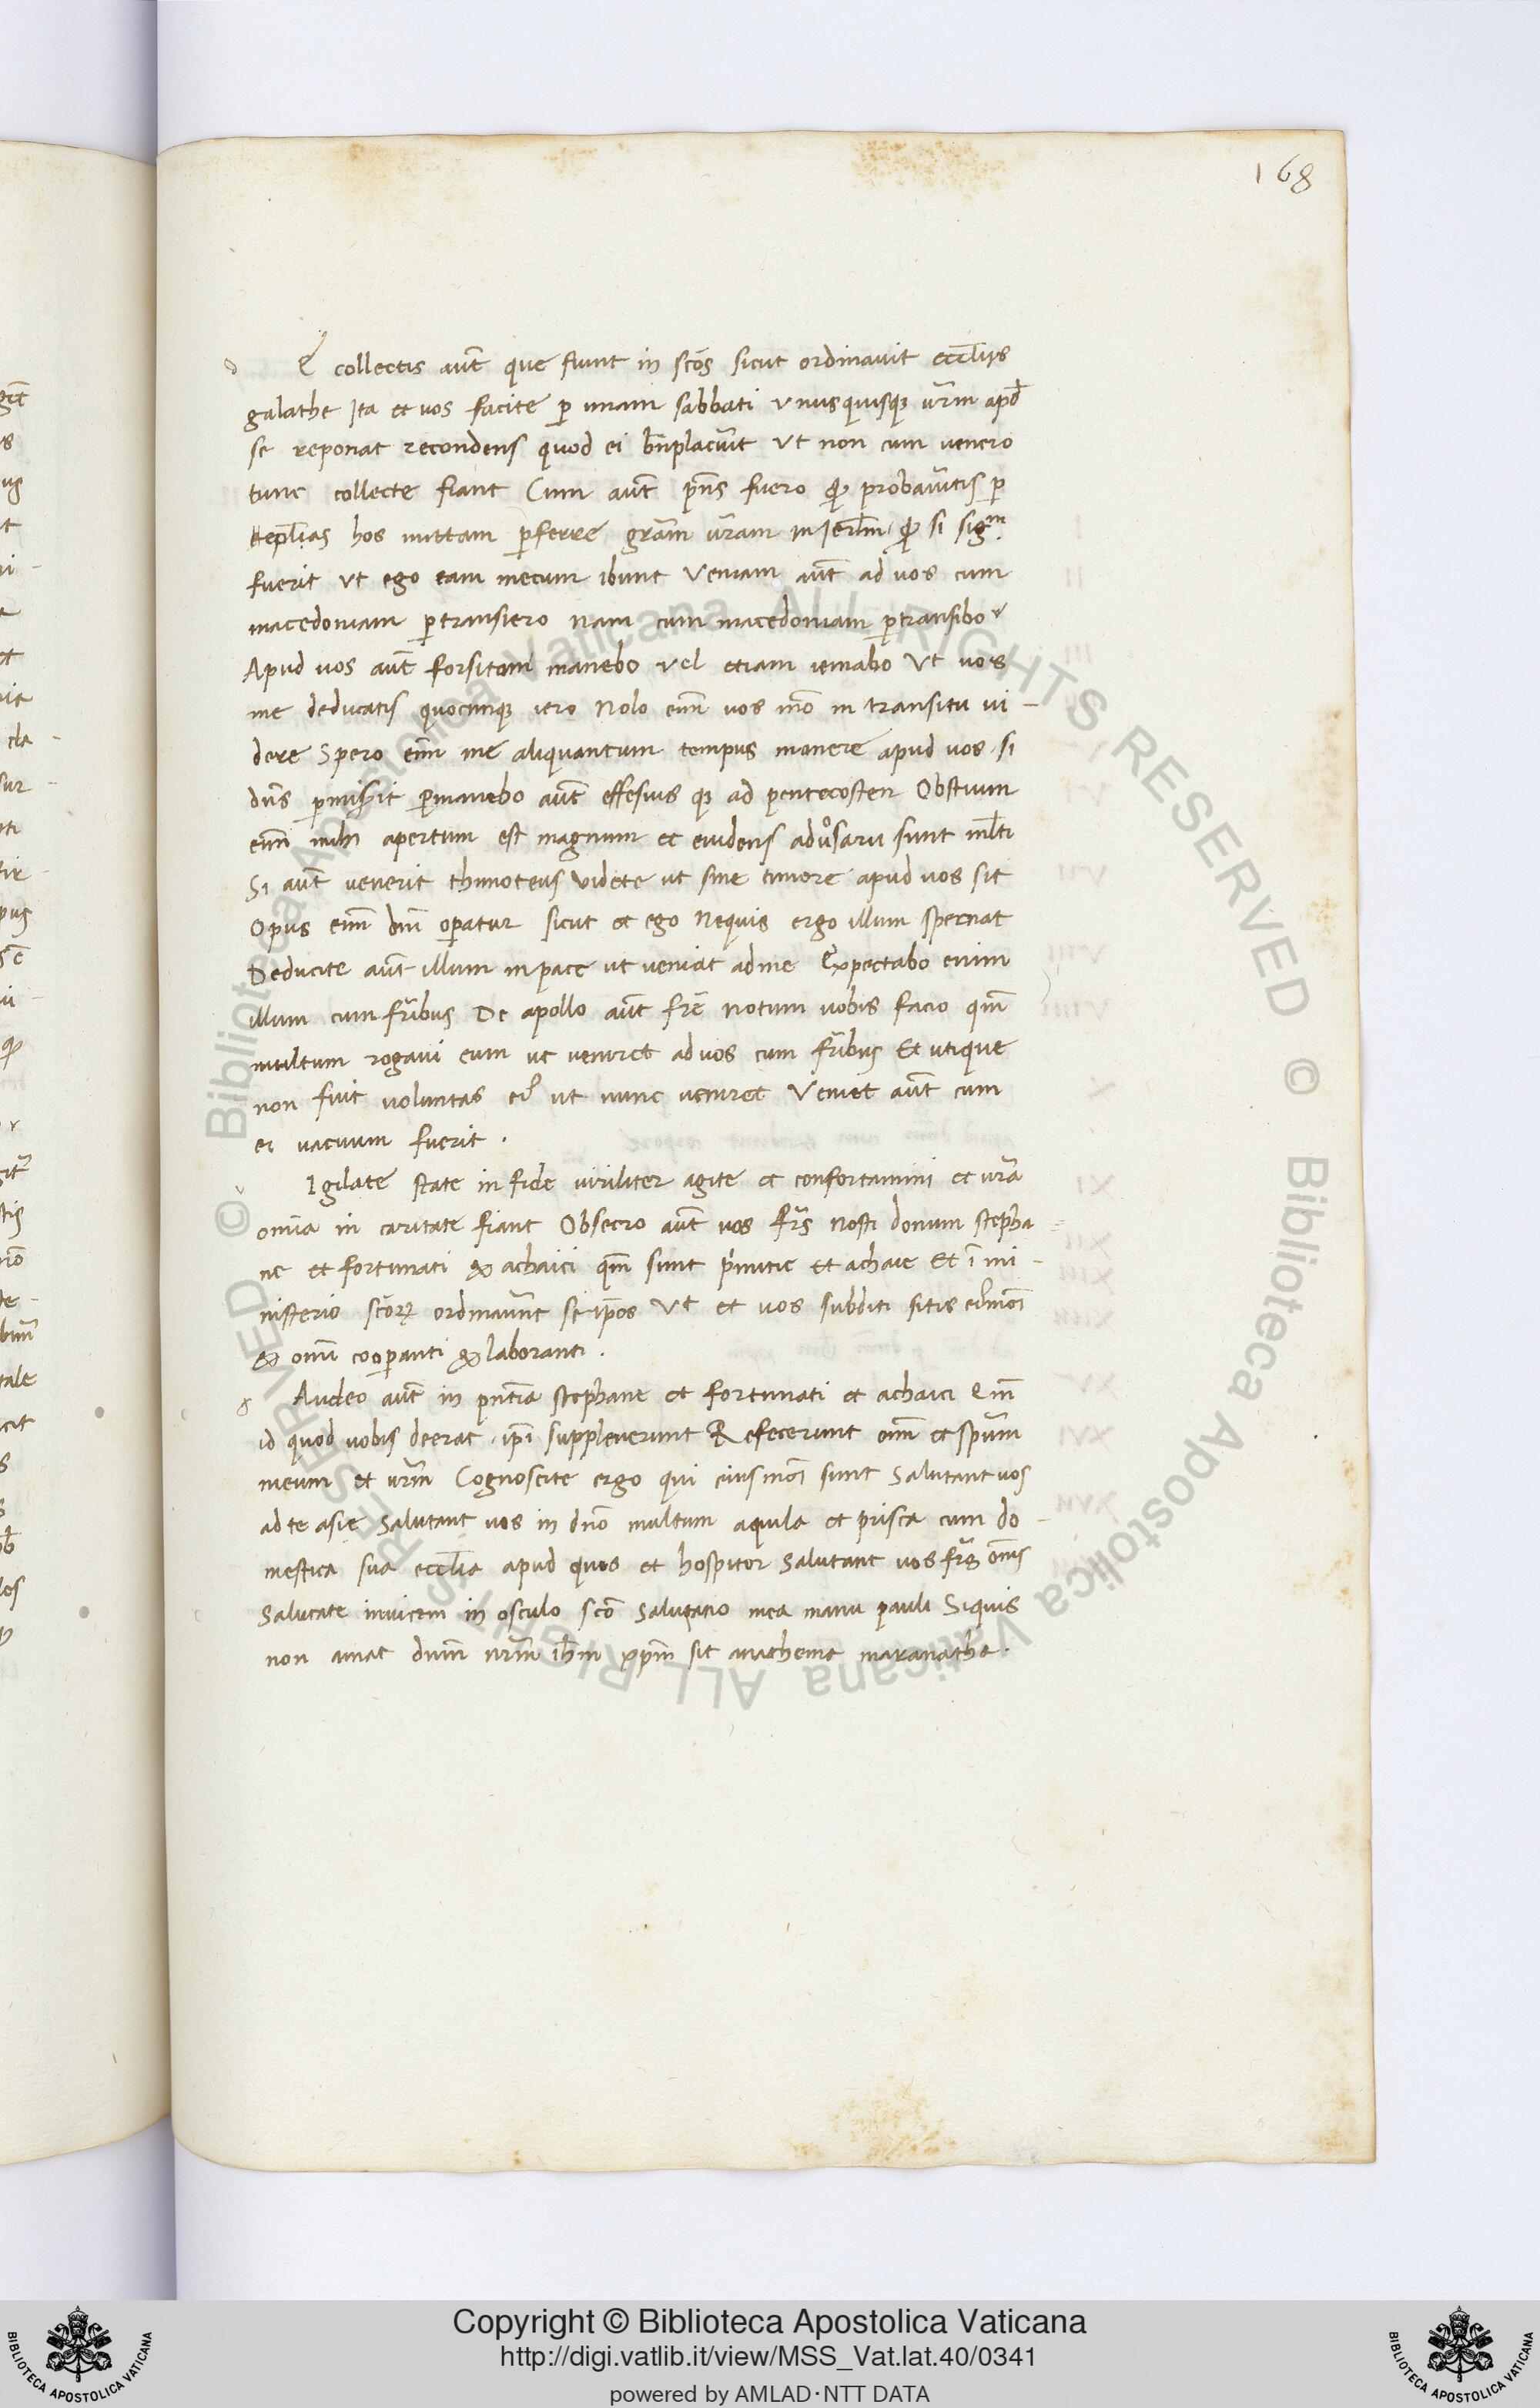 168
d E collectis aut̄ que fiunt in scōs sicut ordinavit eccl̄iys
galathe Ita et vos facite p̱ unam sabbati Unusquisqꝫ vr̄m apđ
se reponat recondens quod ei bn̄placuit Ut non cum venero
tunc collecte fiant Cum aut̄ pn̄s fuero probav̄itis p̱
epl̄ias hos mittam p̱ferre grām vr̄am in Ierl̄m si sigᵐ
fuerit ut ego eam mecum ibunt Veniam aut̄ ad vos cum
macedoniam p̱transiero Nam cum macedoniam p̱transibo
Apud vos aut̄ forsitam manebo vel etiam iemabo Ut vos
me deducatis quocunqꝫ iero Nolo eni̅ vos mō in transitu vi-
dere Spero eni̅ me aliquantum tempus manere apud vos si
dn̄s p̱mis̄it p̱manebo aut̄ effesius qꝫ ad pentecosten Obstium
eni̅ mihi apertum est magnum et evidens adv̄sarii sunt ml̄ti
Si aut̄ venerit thimoteus Videte ut sine timore apud vos sit
Opus eni̅ dn̄i op̱atur sicut et ego Nequis ergo illum spernat
Deducite aut̄ illum in pace ut veniat ad me Expectabo enim
illum cum fr̄ibus De apollo aut̄ fr̄e Notum vobis facio qm̄
multum rogavi eum ut veniret ad vos cum fr̄ibus Et utique
non fuit voluntas ut nunc veniret Veniet aut̄ cum
ei vacuum fuerit .
v Igilate state in fide viriliter agite et confortamini et vr̄a
omīa in caritate fiant Obsecro aut̄ vos fr̄s Nosti donum stepha-
ne et fortunati & achaici qm̄ sunt p̍mitie et achaie Et ī mi-
nisterio scōrꝝ ordinav̄nt se ip̄os Ut et vos subditi sitis
& omī coop̱anti & laboranti .
g Audeo aut̄ in pn̄tia stephane et fortunati et achaici Qm̄
id quod vobis deerat ip̄i suppleverunt Refecerunt eni̅ et sp̄um
meum et vr̄m Cognoscite ergo qui eiusmōi sunt Salutant vos
ad te asie Salutant vos in dn̄o multum aquila et prisca cum do-
mestica sua eccl̄ia apud quos et hospitor Salutant vos fr̄s om̄s
Salutate invicem in osculo scō Salutatio mea manu pauli Siquis
non amat dn̄m nr̄m ih̄m xp̄m sit anathema maranatha .
Copyright © Biblioteca Apostolica Vaticana
http://digi.vatlib.it/view/MSS_Vat.lat.40/0341
powered by AMLAD·NTT DATA